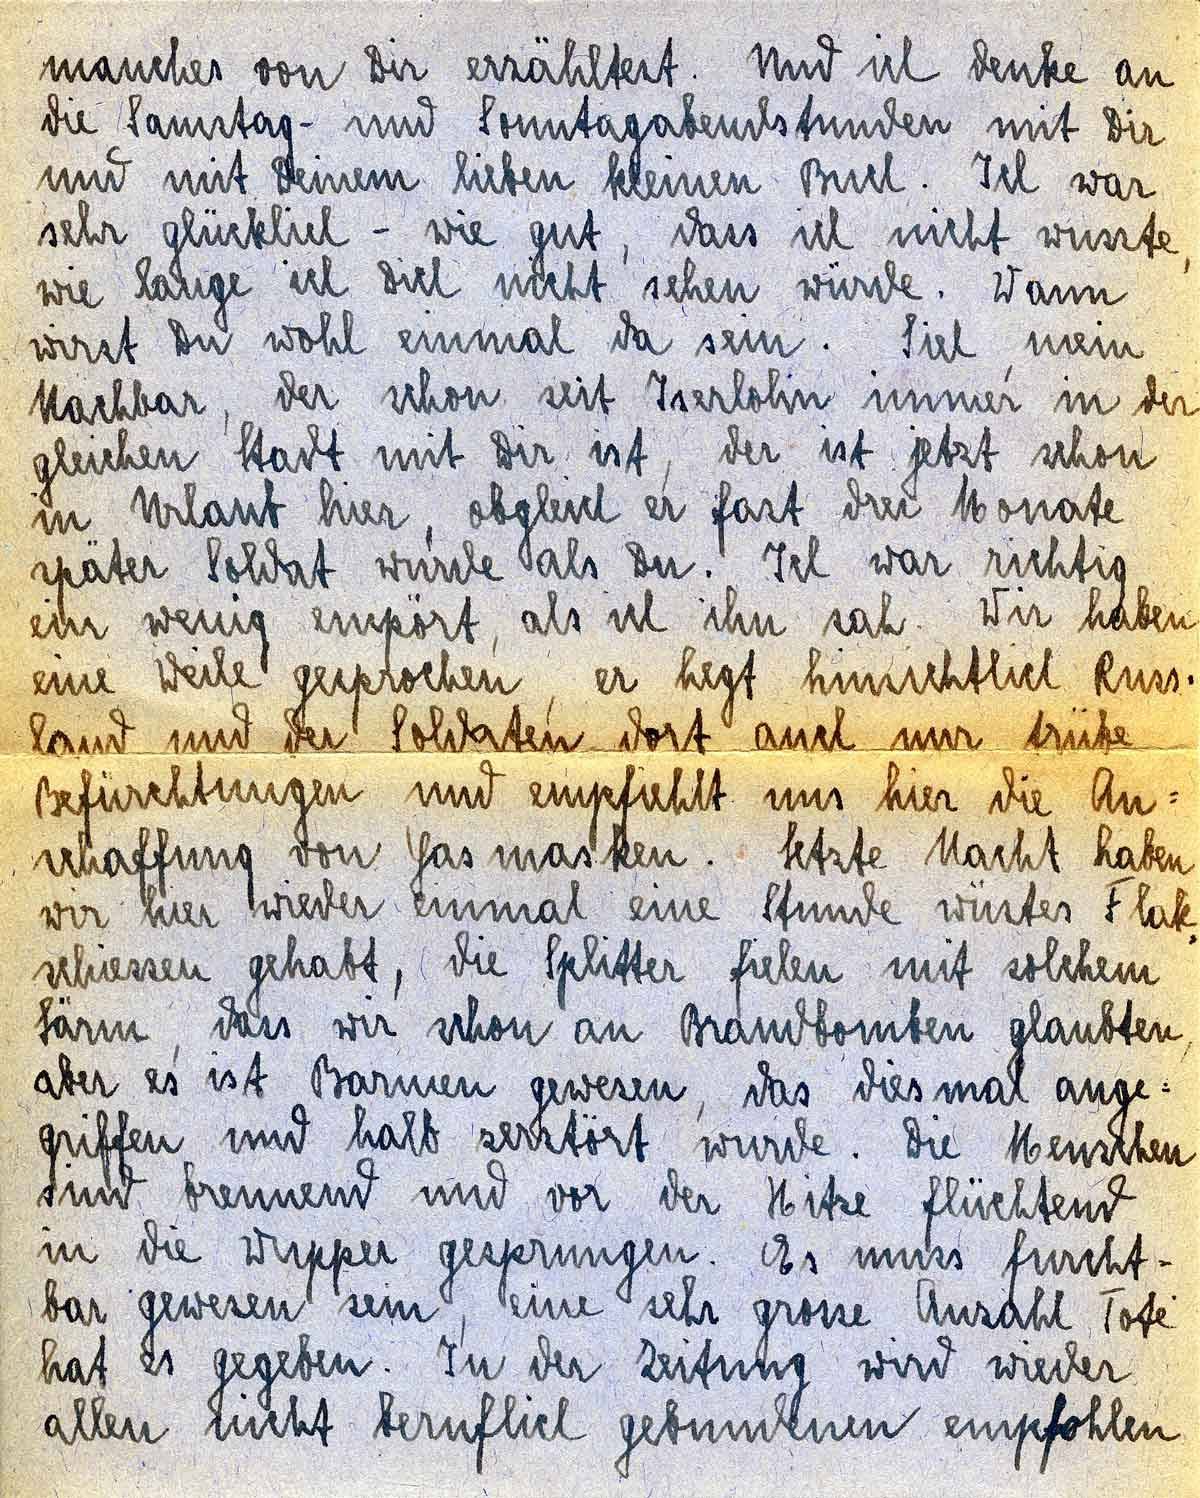 manches von Dir erzähltest. Und ich denke an
die Samstag- und Sonntagabendstunden mit Dir
und mit Deinem lieben kleinen Buch. Ich war
sehr glücklich - wie gut, dass ich nicht wusste,
wie lange ich Dich nicht sehen würde. Wann
wirst Du wohl einmal da sein. Sieh, mein
Nachbar, der schon seit Iserlohn immer in der
gleichen Stadt mit Dir ist, der ist jetzt schon
in Urlaub hier, obgleich er fast drei Monate
später Soldat wurde als Du. Ich war richtig
ein wenig empört, als ich ihn sah. Wir haben
eine Weile gesprochen, er hegt hinsichtlich Russ-
land und der Soldaten dort auch nur trübe
Befürchtungen und empfiehlt uns hier die An=
schaffung von Gasmasken. Letzte Nacht haben
wir hier wieder einmal eine Stunde wüstes Flak-
schiessen gehabt, die Splitter fielen mit solchem
Lärm, dass wir schon an Brandbomben glaubten,
aber es ist Barmen gewesen, das diesmal ange=
griffen und halb zerstört wurde. Die Menschen
sind brennend und vor der Hitze flüchtend
in die Wupper gesprungen. Es muss furcht-
bar gewesen sein, eine sehr grosse Anzahl Tote
hat es gegeben. In der Zeitung wird wieder
allen nicht beruflich gebundenen empfohlen